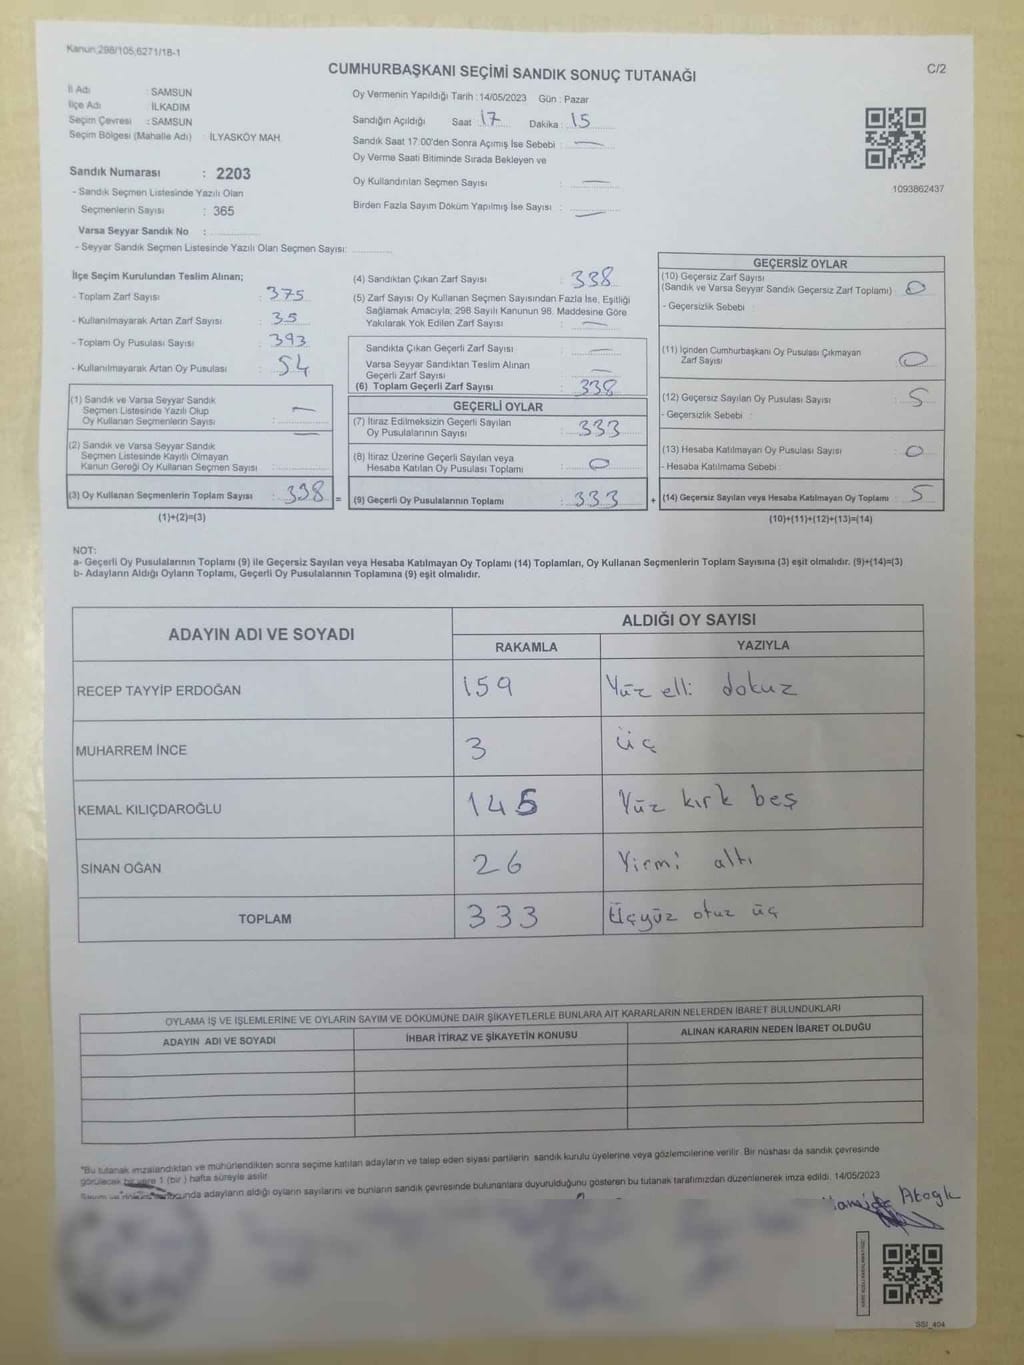 Kanun,298/105,6271/18-1
C/2
CUMHURBAŞKANI SEÇİMİ SANDIK SONUÇ TUTANAĞI
İl Adı : SAMSUN
İlçe Adı : İLKADIM
Seçim Çevresi : SAMSUN
Seçim Bölgesi (Mahalle Adı) : İLYASKÖY MAH.
Sandık Numarası : 2203
- Sandık Seçmen Listesinde Yazılı Olan
Seçmenlerin Sayısı : 365
Varsa Seyyar Sandık No :
- Seyyar Sandık Seçmen Listesinde Yazılı Olan Seçmen Sayısı:
Oy Vermenin Yapıldığı Tarih :14/05/2023 Gün : Pazar
Sandığın Açıldığı Saat 17 Dakika : 15
Sandık Saat 17.00'den Sonra Açımış İse Sebebi : —
Oy Verme Saati Bitiminde Sırada Bekleyen ve
Oy Kullandırılan Seçmen Sayısı : —
Birden Fazla Sayım Döküm Yapılmış İse Sayısı : —
1093862437
İlçe Seçim Kurulundan Teslim Alınan;
- Toplam Zarf Sayısı : 375
- Kullanılmayarak Artan Zarf Sayısı : 35
- Toplam Oy Pusulası Sayısı : 393
- Kullanılmayarak Artan Oy Pusulası : 54
(1) Sandık ve Varsa Seyyar Sandık
Seçmen Listesinde Yazılı Olup
Oy Kullanan Seçmenlerin Sayısı : —
(2) Sandık ve Varsa Seyyar Sandık
Seçmen Listesinde Kayıtlı Olmayan
Kanun Gereği Oy Kullanan Seçmen Sayısı : —
(3) Oy Kullanan Seçmenlerin Toplam Sayısı : 338 =
(1)+(2)=(3)
(4) Sandıktan Çıkan Zarf Sayısı : 338
(5) Zarf Sayısı Oy Kullanan Seçmen Sayısından Fazla İse, Eşitliği
Sağlamak Amacıyla, 298 Sayılı Kanunun 98. Maddesine Göre
Yakılarak Yok Edilen Zarf Sayısı : —
Sandıkta Çıkan Geçerli Zarf Sayısı : —
Varsa Seyyar Sandıktan Teslim Alınan
Geçerli Zarf Sayısı : —
(6) Toplam Geçerli Zarf Sayısı : 338
GEÇERLİ OYLAR
(7) İtiraz Edilmeksizin Geçerli Sayılan
Oy Pusulalarının Sayısı : 333
(8) İtiraz Üzerine Geçerli Sayılan veya
Hesaba Katılan Oy Pusulası Toplamı : 0
(9) Geçerli Oy Pusulalarının Toplamı : 333 +
GEÇERSİZ OYLAR
(10) Geçersiz Zarf Sayısı
(Sandık ve Varsa Seyyar Sandık Geçersiz Zarf Toplamı) : 0
- Geçersizlik Sebebi :
(11) İçinden Cumhurbaşkanı Oy Pusulası Çıkmayan
Zarf Sayısı : 0
(12) Geçersiz Sayılan Oy Pusulası Sayısı : 5
- Geçersizlik Sebebi :
(13) Hesaba Katılmayan Oy Pusulası Sayısı : 0
- Hesaba Katılmama Sebebi :
(14) Geçersiz Sayılan veya Hesaba Katılmayan Oy Toplamı : 5
(10)+(11)+(12)+(13)=(14)
NOT:
a- Geçerli Oy Pusulalarının Toplamı (9) ile Geçersiz Sayılan veya Hesaba Katılmayan Oy Toplamı (14) Toplamları, Oy Kullanan Seçmenlerin Toplam Sayısına (3) eşit olmalıdır. (9)+(14)=(3)
b- Adayların Aldığı Oyların Toplamı, Geçerli Oy Pusulalarının Toplamına (9) eşit olmalıdır.
ADAYIN ADI VE SOYADI
ALDIĞI OY SAYISI
RAKAMLA YAZIYLA
RECEP TAYYİP ERDOĞAN 159 Yüz elli dokuz
MUHARREM İNCE 3 üç
KEMAL KILIÇDAROĞLU 145 Yüz kırk beş
SİNAN OĞAN 26 Yirmi altı
TOPLAM 333 Üçyüz otuz üç
OYLAMA İŞ VE İŞLEMLERİNE VE OYLARIN SAYIM VE DÖKÜMÜNE DAİR ŞİKAYETLERLE BUNLARA AİT KARARLARIN NELERDEN İBARET BULUNDUKLARI
ADAYIN ADI VE SOYADI İHBAR İTİRAZ VE ŞİKAYETİN KONUSU ALINAN KARARIN NEDEN İBARET OLDUĞU
*Bu tutanak imzalandıktan ve mühürlendikten sonra seçime katılan adayların ve talep eden siyasi partilerin sandık kurulu üyelerine veya gözlemcilerine verilir. Bir nüshası da sandık çevresinde
görülecek bir yere 1 (bir) hafta süreyle asılır.
adayların aldığı oyların sayılarını ve bunların sandık çevresinde bulunanlara duyurulduğunu gösteren bu tutanak tarafımızdan düzenlenerek imza edildi. 14/05/2023
SSI_404